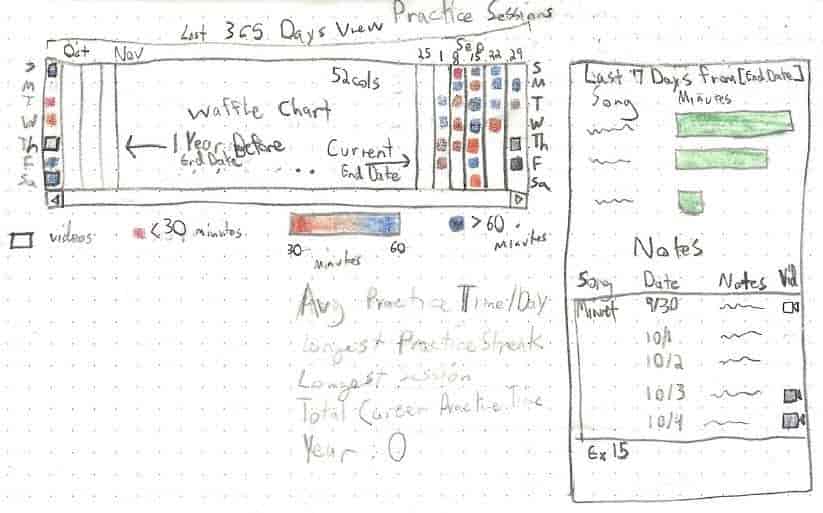 Practice Sessions
Last 365 Days View
Oct Nov 25 1 8 15 22 29
Sep
S
M
T
W
Th
F
Sa
52 cols
Waffle Chart
1 Year Before
End Date
Current
End Date
S
M
T
W
Th
F
Sa
videos
<30 minutes
30 60
minutes
>60
Minutes
Avg Practice Time/Day
Longest Practice Streak
Longest Session
Total Career Practice Time
Year : 0
Last 7 Days from [End Date]
Song Minutes
Notes
Song Date Notes Vid
Minuet 9/30
10/1
10/2
10/3
10/4
Ex 15